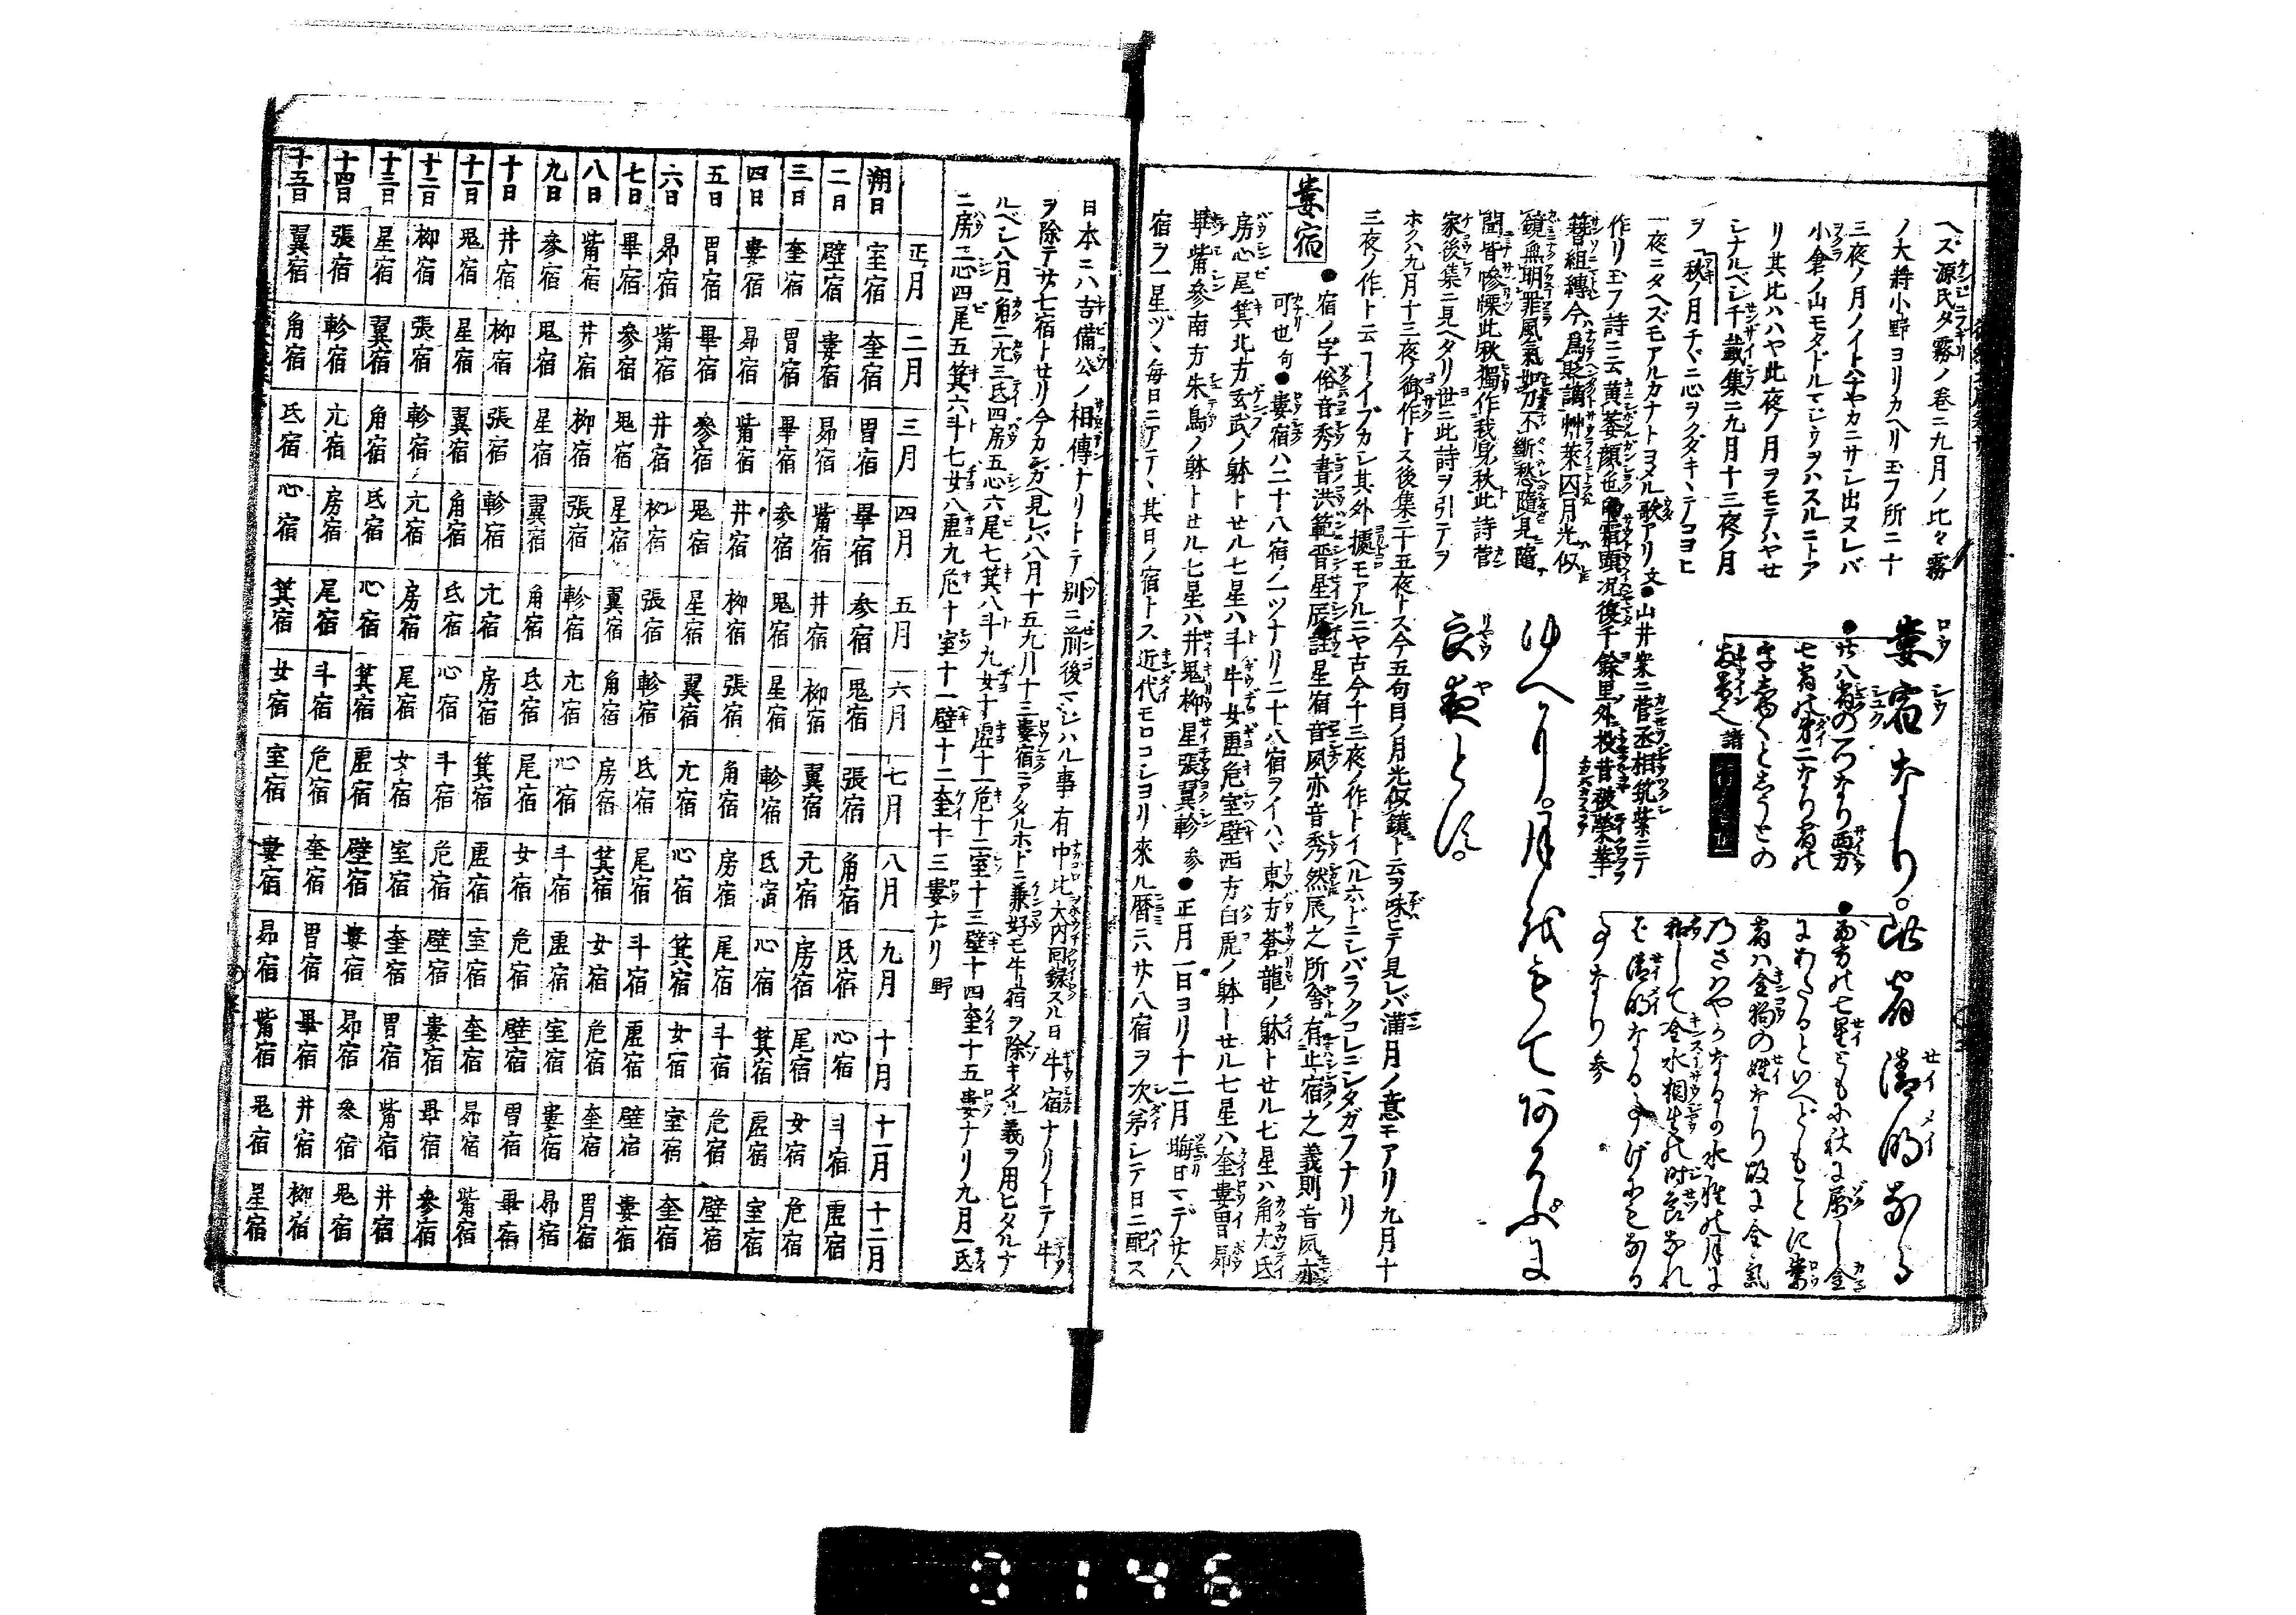 ヘズ源氏夕霧ノ巻ニ九月ノ比々霧
ノ大將小野ヨリカヘリ玉フ所ニ十
三夜ノ月ノイトハナヤカニサシ出ヌレバ
小倉ノ山モタドルマジウヲハスルニトア
リ其比ハハヤ此夜ノ月ヲモテハヤセ
シナルベシ千載集ニ九月十三夜ノ月
ヲ秋ノ月チヾニ心ヲクダキヽテコヨヒ
一夜ニタヘズモアルカナトヨメル歌アリ文●山井案ニ菅丞相筑紫ニテ
作リ玉フ詩ニ云黄萎顔色白霜頭況復千餘里外投昔被榮華
簪組縛今爲貶謫艸萊囚月光似
鏡無明罪風氣如刀不斷愁隨見隨
聞皆慘慄此秋獨作我身秋此詩菅
家後集ニ見ヘタリ世ニ此詩ヲ引テヲ
ホクハ九月十三夜ノ御作トス後集ニ十五夜トス今五句目ノ月光似鏡ト云ヲ味ヒテ見レバ滿月ノ意モアリ九月十
三夜ノ作ト云ヿイブカシ其外據モアルニヤ古今十三夜ノ作トイヘル六ドニシバラクコレニシタガフナリ
婁宿なり。此宿清明なる
ゆへに。月をもてあそぶに
良夜とす。
●廿八宿の一つなり西方
七宿の第二なり宿の
字しゆくとしうとの
兩音也 諸
●西方の七星ともに秋に属し金
にあたるといへどもことに婁
宿ハ金狗の姓なり故に金氣
のさハやかなるの水性の月に
和して金水相生の時節なれ
ば清明なる事げにもなる
事なり 参
婁宿
●宿ノ字俗音秀書洪範晋星辰註星宿音夙亦音秀然辰之所舎有止宿之義則音夙亦
可也句●婁宿ハ二十八宿ノ一ツナリ二十八宿ヲイハヾ東方蒼龍ノ躰トせル七星ハ角亢氐
房心尾箕北方玄武ノ躰トせル七星ハ斗牛女虚危室壁西方白虎ノ躰トせル七星ハ奎婁胃昴
畢觜參南方朱鳥ノ躰トせル七星ハ井鬼柳星張翼軫 参●正月一日ヨリ十二月晦日マデ廿八
宿ヲ一星ヅヽ毎日ニアテヽ其日ノ宿トス近代モロコシヨリ來ル暦ニハ廿八宿ヲ次第シテ日ニ配ス
日本ニハ吉備公ノ相傳ナリトテ別ニ前後マジハル事有中比大内回録スル日牛宿ナリトテ牛
ヲ除テ廿七宿トせリ今カンガヘ見レバ八月十五九月十三婁宿ニアタルホドニ兼好モ牛宿ヲ除キタル義ヲ用ヒタルナ
ルベシ八月一角二亢三氐四房五心六尾七箕八斗九女十虚十一危十二室十三壁十四奎十五婁ナリ九月一氐
二房三心四尾五箕六斗七女八虚九危十室十一壁十二奎十三婁ナリ 野
正月 二月 三月 四月 五月 六月 七月 八月 九月 十月 十一月 十二月
朔日 室宿 奎宿 胃宿 畢宿 參宿 鬼宿 張宿 角宿 氐宿 心宿 斗宿 虚宿
二日 壁宿 婁宿 昴宿 觜宿 井宿 柳宿 翼宿 亢宿 房宿 尾宿 女宿 危宿
三日 奎宿 胃宿 畢宿 參宿 鬼宿 星宿 軫宿 氐宿 心宿 箕宿 虚宿 室宿
四日 婁宿 昴宿 觜宿 井宿 柳宿 張宿 角宿 房宿 尾宿 斗宿 危宿 壁宿
五日 胃宿 畢宿 參宿 鬼宿 星宿 翼宿 亢宿 心宿 箕宿 女宿 室宿 奎宿
六日 昴宿 觜宿 井宿 柳宿 張宿 軫宿 氐宿 尾宿 斗宿 虚宿 壁宿 婁宿
七日 畢宿 參宿 鬼宿 星宿 翼宿 角宿 房宿 箕宿 女宿 危宿 奎宿 胃宿
八日 觜宿 井宿 柳宿 張宿 軫宿 亢宿 心宿 斗宿 虚宿 室宿 婁宿 昴宿
九日 參宿 鬼宿 星宿 翼宿 角宿 氐宿 尾宿 女宿 危宿 壁宿 胃宿 畢宿
十日 井宿 柳宿 張宿 軫宿 亢宿 房宿 箕宿 虚宿 室宿 奎宿 昴宿 觜宿
十一日 鬼宿 星宿 翼宿 角宿 氐宿 心宿 斗宿 危宿 壁宿 婁宿 畢宿 參宿
十二日 柳宿 張宿 軫宿 亢宿 房宿 尾宿 女宿 室宿 奎宿 胃宿 觜宿 井宿
十三日 星宿 翼宿 角宿 氐宿 心宿 箕宿 虚宿 壁宿 婁宿 昴宿 參宿 鬼宿
十四日 張宿 軫宿 亢宿 房宿 尾宿 斗宿 危宿 奎宿 胃宿 畢宿 井宿 柳宿
十五日 翼宿 角宿 氐宿 心宿 箕宿 女宿 室宿 婁宿 昴宿 觜宿 鬼宿 星宿
0146